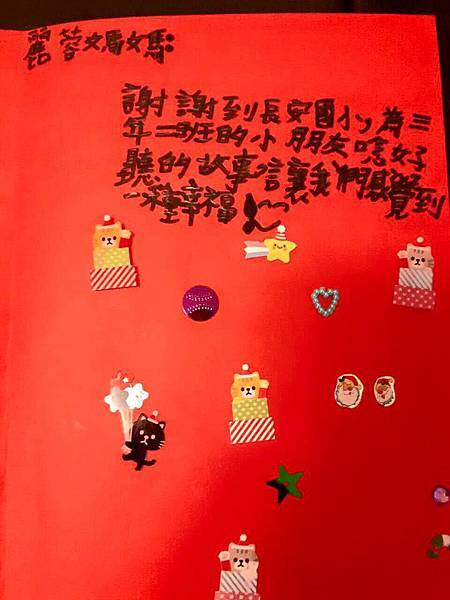 麗蓉媽媽:
謝謝到長安國小為三
年二班的小朋友唸好
聽的故事信讓我們感覺到
一種幸福